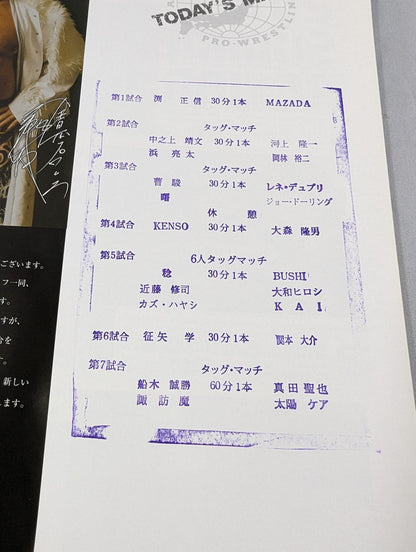 TODAY'S M
PRO-WRESTLIN
第1試合 渕 正信 30分1本 MAZADA
第2試合 タッグ・マッチ
中之上 靖文 30分1本 河上 隆一
浜 亮太 岡林 裕二
第3試合 タッグ・マッチ
曹 駿 30分1本 レネ・デュプリ
曙 ジョー・ドーリング
休 憩
第4試合 KENSO 30分1本 大森 隆男
第5試合 6人タッグマッチ
稔 30分1本 BUSHI
近藤 修司 大和ヒロシ
カズ・ハヤシ KAI
第6試合 征矢 学 30分1本 関本 大介
第7試合 タッグ・マッチ
船木 誠勝 60分1本 真田 聖也
諏訪魔 太陽 ケア
ございます。
フ一同、
す。
すが、
合を
です。
新しい
します。